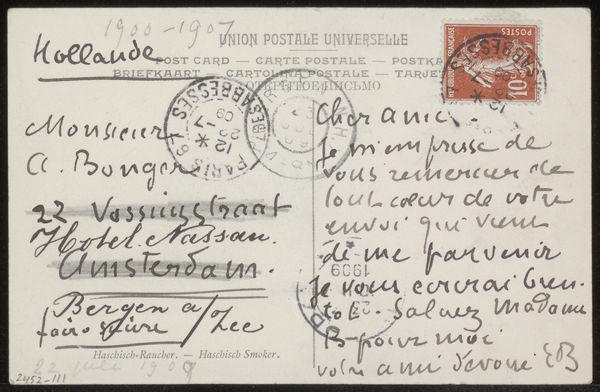 1900-1907
Hollande
UNION POSTALE UNIVERSELLE
POST CARD — CARTE POSTALE — POSTKA
BRIEFKAART — CARTOLINA POSTALE — TARJE
REPUBLIQUE FRANÇAISE
POSTES
10
PARIS 67
R. DES ABBESSES
12 *
23 -7
09
Monsieur
A. Bonger
22 Vossiusstraat
Hotel Nassau.
Amsterdam.
Bergen a/
faire suivre a/Zee
Cher ami.
Je m'empresse de
vous remercier de
tout cœur de votre
envoi qui vient
de me parvenir
Je vous écrirai bien-
tot. Saluez Madame
B pour moi
votre ami dévoué EB
1909
Haschisch-Raucher. — Haschisch Smoker.
22 juli 1909
2452-111